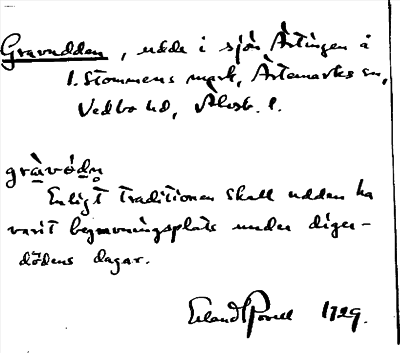 Gravudden, udde i sjön Ärtingen å
1. Stommens mark, Ärtemarks sn,
Vedbo hd, Älvsb. l.
gràvó̀dn̥
Enligt traditionen skall udden ha
varit begravningsplats under diger-
dödens dagar.
Erland 1929.